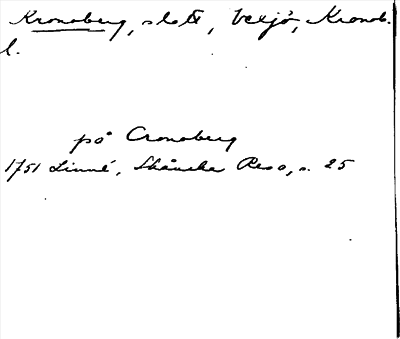 Kronoberg, slott, Vexjö, Kronob.
l.
på Cronoberg
1751 Linné, Skånska Resa, s. 25